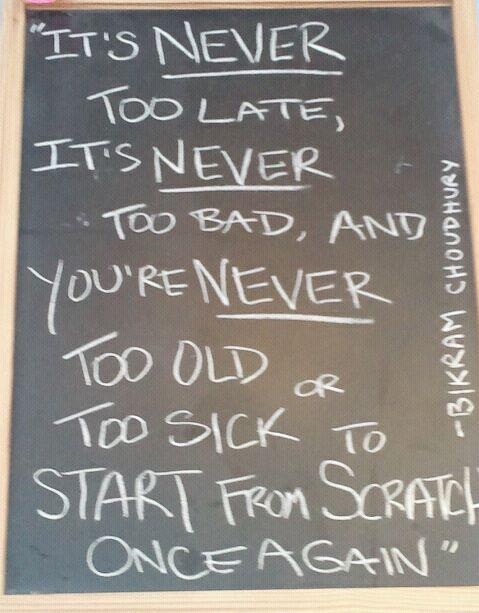 "IT'S NEVER
TOO LATE,
IT'S NEVER
TOO BAD, AND
YOU'RE NEVER
TOO OLD OR
TOO SICK TO
START FROM SCRATCH
ONCE AGAIN"
-BIKRAM CHOUDHURY